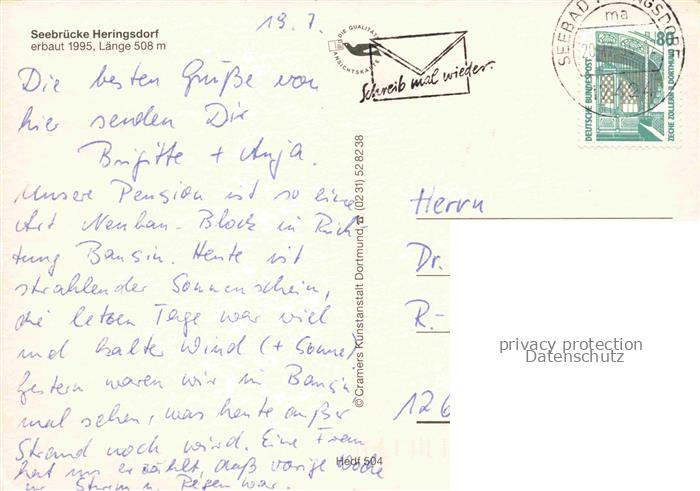 19. 7.
Seebrücke Heringsdorf
erbaut 1995, Länge 508 m
DIE QUALITÄTS
ANSICHTSKARTE
Schreib mal wieder
SEEBAD HERINGSDORF
ma
80
DEUTSCHE BUNDESPOST
ZECHE ZOLLERN II DORTMUND
Die besten Grüße von
hier senden Dir
Brigitte + Anja.
Unsere Pension ist so eine
Art Neubau-Block in Rich-
tung Bansin. Heute ist
strahlender Sonnenschein,
die letzen Tage war viel
und kalter Wind (+ Sonne)
Gestern waren wir in Bansin,
mal sehen, was heute außer
Strand noch wird. Eine Frau
hat uns erzählt, daß vorige Woche
nur Sturm u. Regen war.
© Cramers Kunstanstalt Dortmund ☎ (0231) 528238
Hedf 504
Herrn
Dr.
R.-
126
privacy protection
Datenschutz